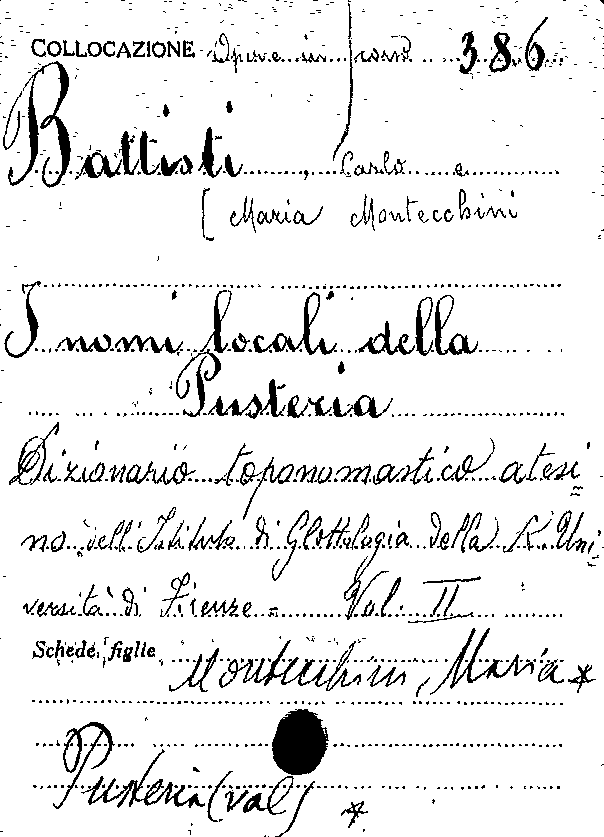 COLLOCAZIONE Opere in 386
Battisti, Carlo e
[Maria Montecchini
I nomi locali della
Pusteria
Dizionario toponomastico atesi=
no dell'Istituto di Glottologia della R. Uni-
versità di Firenze = Vol. II
Schede figlie Montecchini, Maria *
Pusteria (val) *